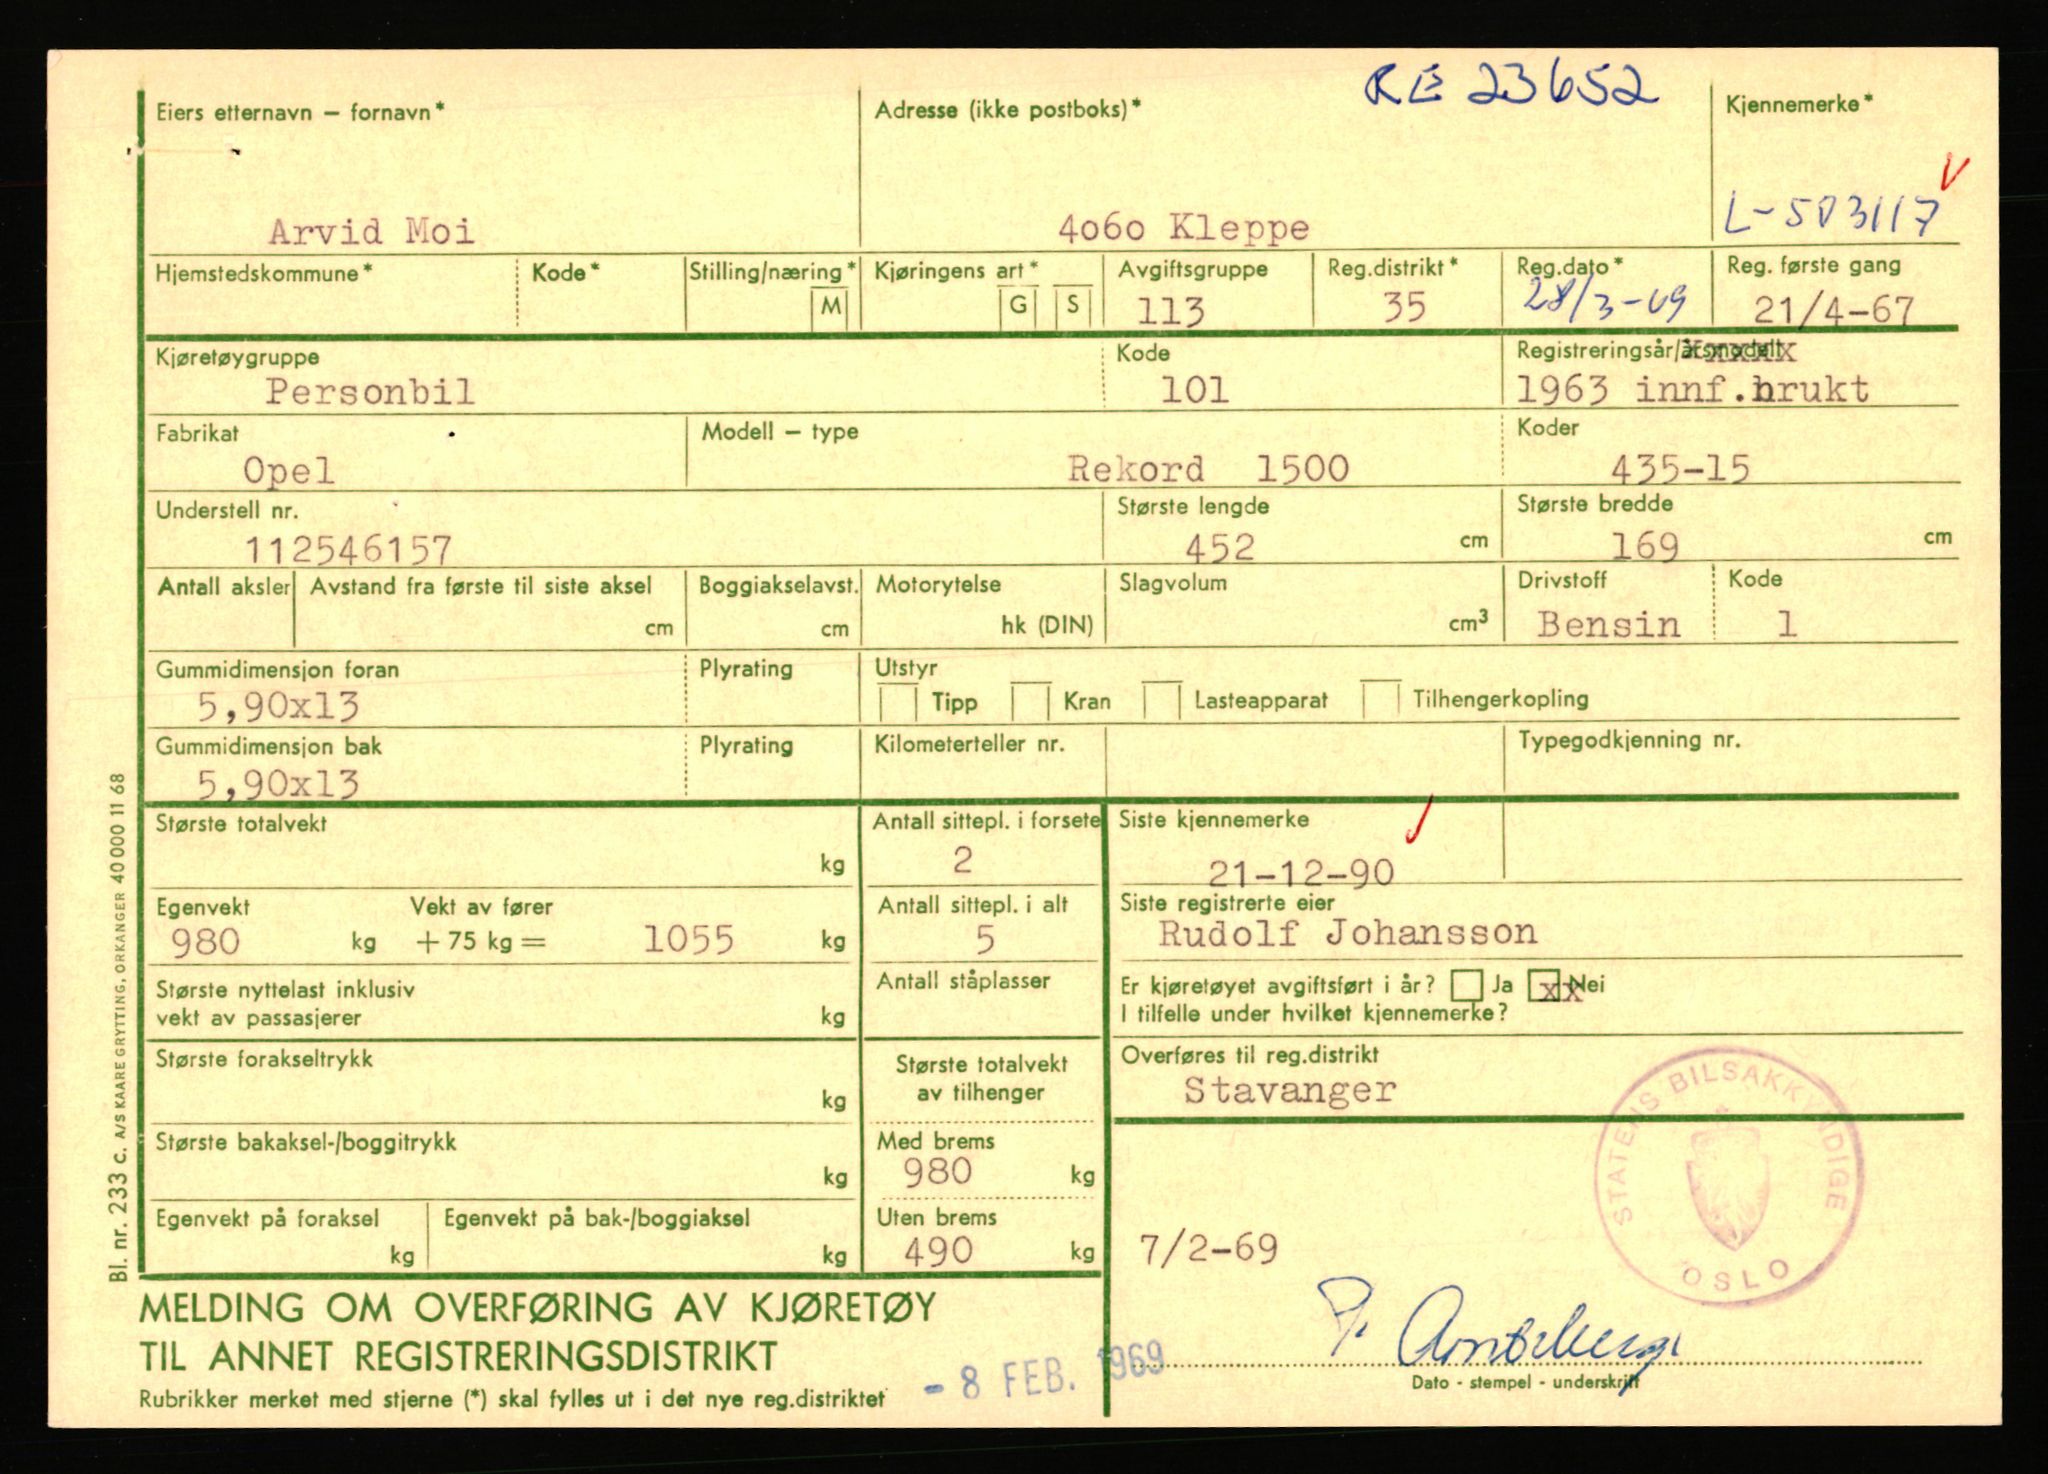 RE 23652
Eiers etternavn – fornavn*
Adresse (ikke postboks)*
Kjennemerke*
V
Arvid Moi
4o6o Kleppe
L-503117
Hjemstedskommune*
Kode*
Stilling/næring*
M
Kjøringens art*
G
S
Avgiftsgruppe
113
Reg.distrikt*
35
Reg.dato*
28/3-69
Reg. første gang
21/4-67
Kjøretøygruppe
Personbil
Kode
101
Registreringsår/årsmodell
1963 innf.brukt
Fabrikat
Opel
Modell – type
Rekord 1500
Koder
435-15
Understell nr.
112546157
Største lengde
452 cm
Største bredde
169 cm
Antall aksler
Avstand fra første til siste aksel
cm
Boggiakselavst.
cm
Motorytelse
hk (DIN)
Slagvolum
cm³
Drivstoff
Bensin
Kode
1
Gummidimensjon foran
5,90x13
Plyrating
Utstyr
Tipp
Kran
Lasteapparat
Tilhengerkopling
Gummidimensjon bak
5,90x13
Plyrating
Kilometerteller nr.
Typegodkjenning nr.
Største totalvekt
kg
Antall sittepl. i forsete
2
Siste kjennemerke
21-12-90
Egenvekt
980 kg
Vekt av fører
+ 75 kg = 1055 kg
Antall sittepl. i alt
5
Siste registrerte eier
Rudolf Johansson
Største nyttelast inklusiv
vekt av passasjerer
kg
Antall ståplasser
Er kjøretøyet avgiftsført i år? Ja xx Nei
I tilfelle under hvilket kjennemerke?
Største forakseltrykk
kg
Største totalvekt
av tilhenger
Overføres til reg.distrikt
Stavanger
Største bakaksel-/boggitrykk
kg
Med brems
980 kg
Egenvekt på foraksel
kg
Egenvekt på bak-/boggiaksel
kg
Uten brems
490 kg
7/2-69
STATENS BILSAKKYNDIGE
OSLO
MELDING OM OVERFØRING AV KJØRETØY
TIL ANNET REGISTRERINGSDISTRIKT
Rubrikker merket med stjerne (*) skal fylles ut i det nye reg.distriktet
- 8 FEB. 1969
Dato - stempel - underskrift
Bl. nr. 233 c. A/S KAARE GRYTTING, ORKANGER 40 000 11 68